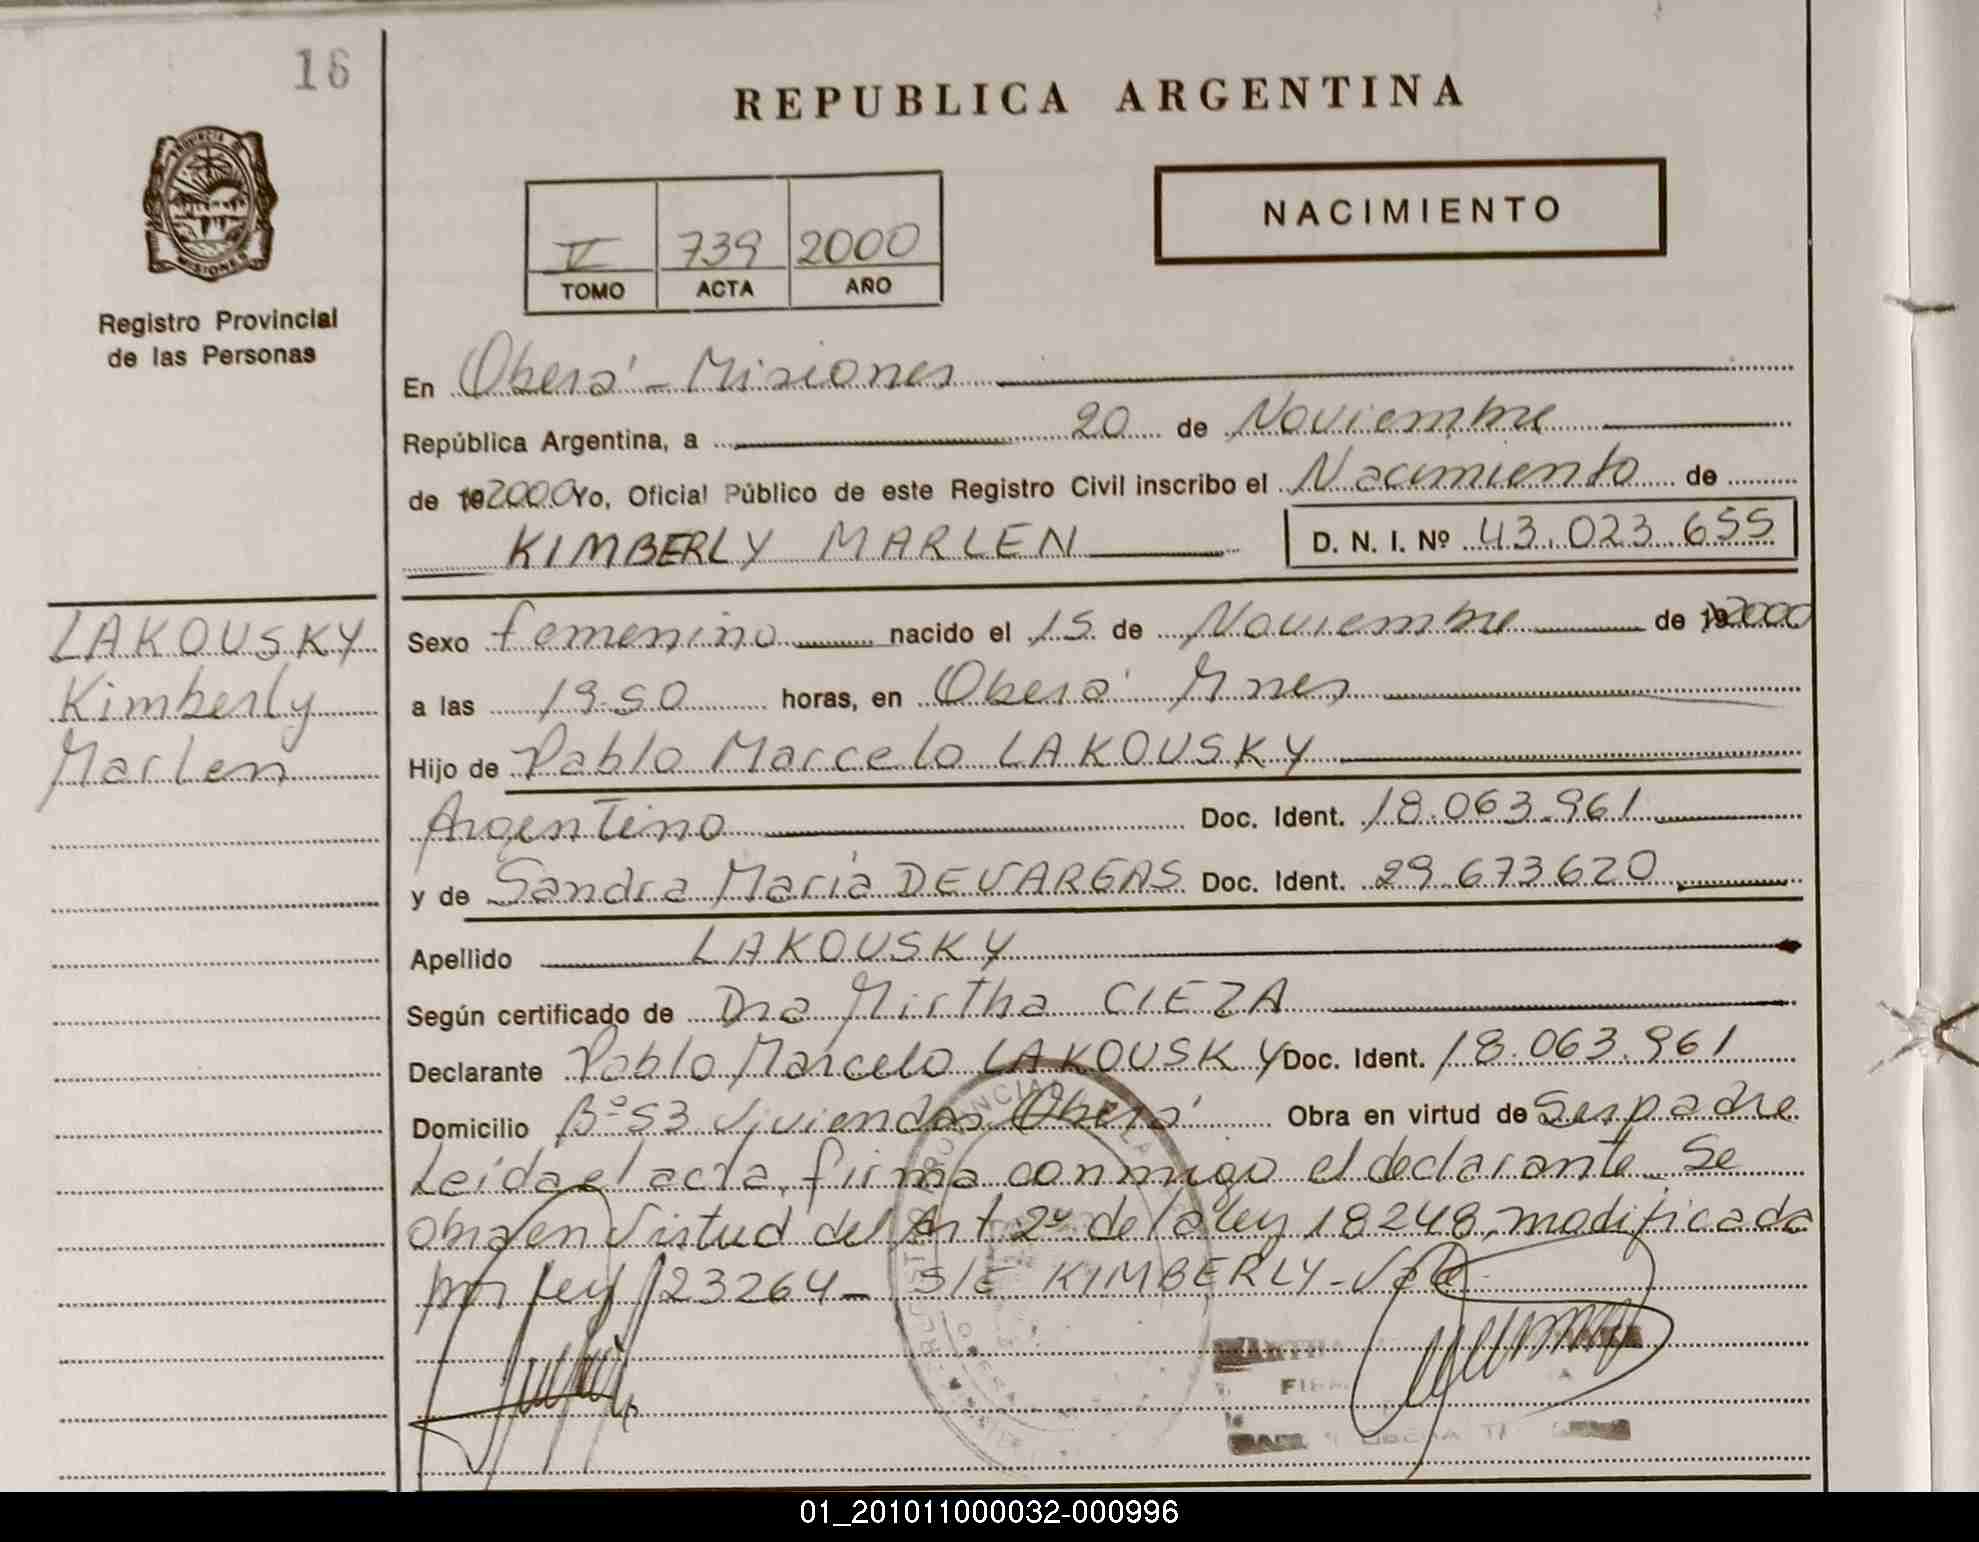 16
REPUBLICA ARGENTINA
PROVINCIA DE
MISIONES
Registro Provincial
de las Personas
NACIMIENTO
V 739 2000
TOMO ACTA AÑO
En Oberá - Misiones
República Argentina, a 20 de Noviembre
de 192000 Yo, Oficial Público de este Registro Civil inscribo el Nacimiento de
KIMBERLY MARLEN D. N. I. Nº 43.023.655
LAKOUSKY
Kimberly
Marlen
Sexo femenino nacido el 15 de Noviembre de 192000
a las 19.50 horas, en Oberá Mnes
Hijo de Pablo Marcelo LAKOUSKY
Argentino Doc. Ident. 18.063.961
y de Sandra María DEVARGAS Doc. Ident. 29.673620
Apellido LAKOUSKY
Según certificado de Dra Mirtha CIEZA
Declarante Pablo Marcelo LAKOUSKY Doc. Ident. 18.063.961
Domicilio Bº 53 Viviendas Oberá Obra en virtud de Ser padre
Leida el acta, firma conmigo el declarante Se
obra en Virtud del Art 2º de la ley 18248, modificada
por ley 23264 - S/E KIMBERLY - Vale
01_201011000032-000996